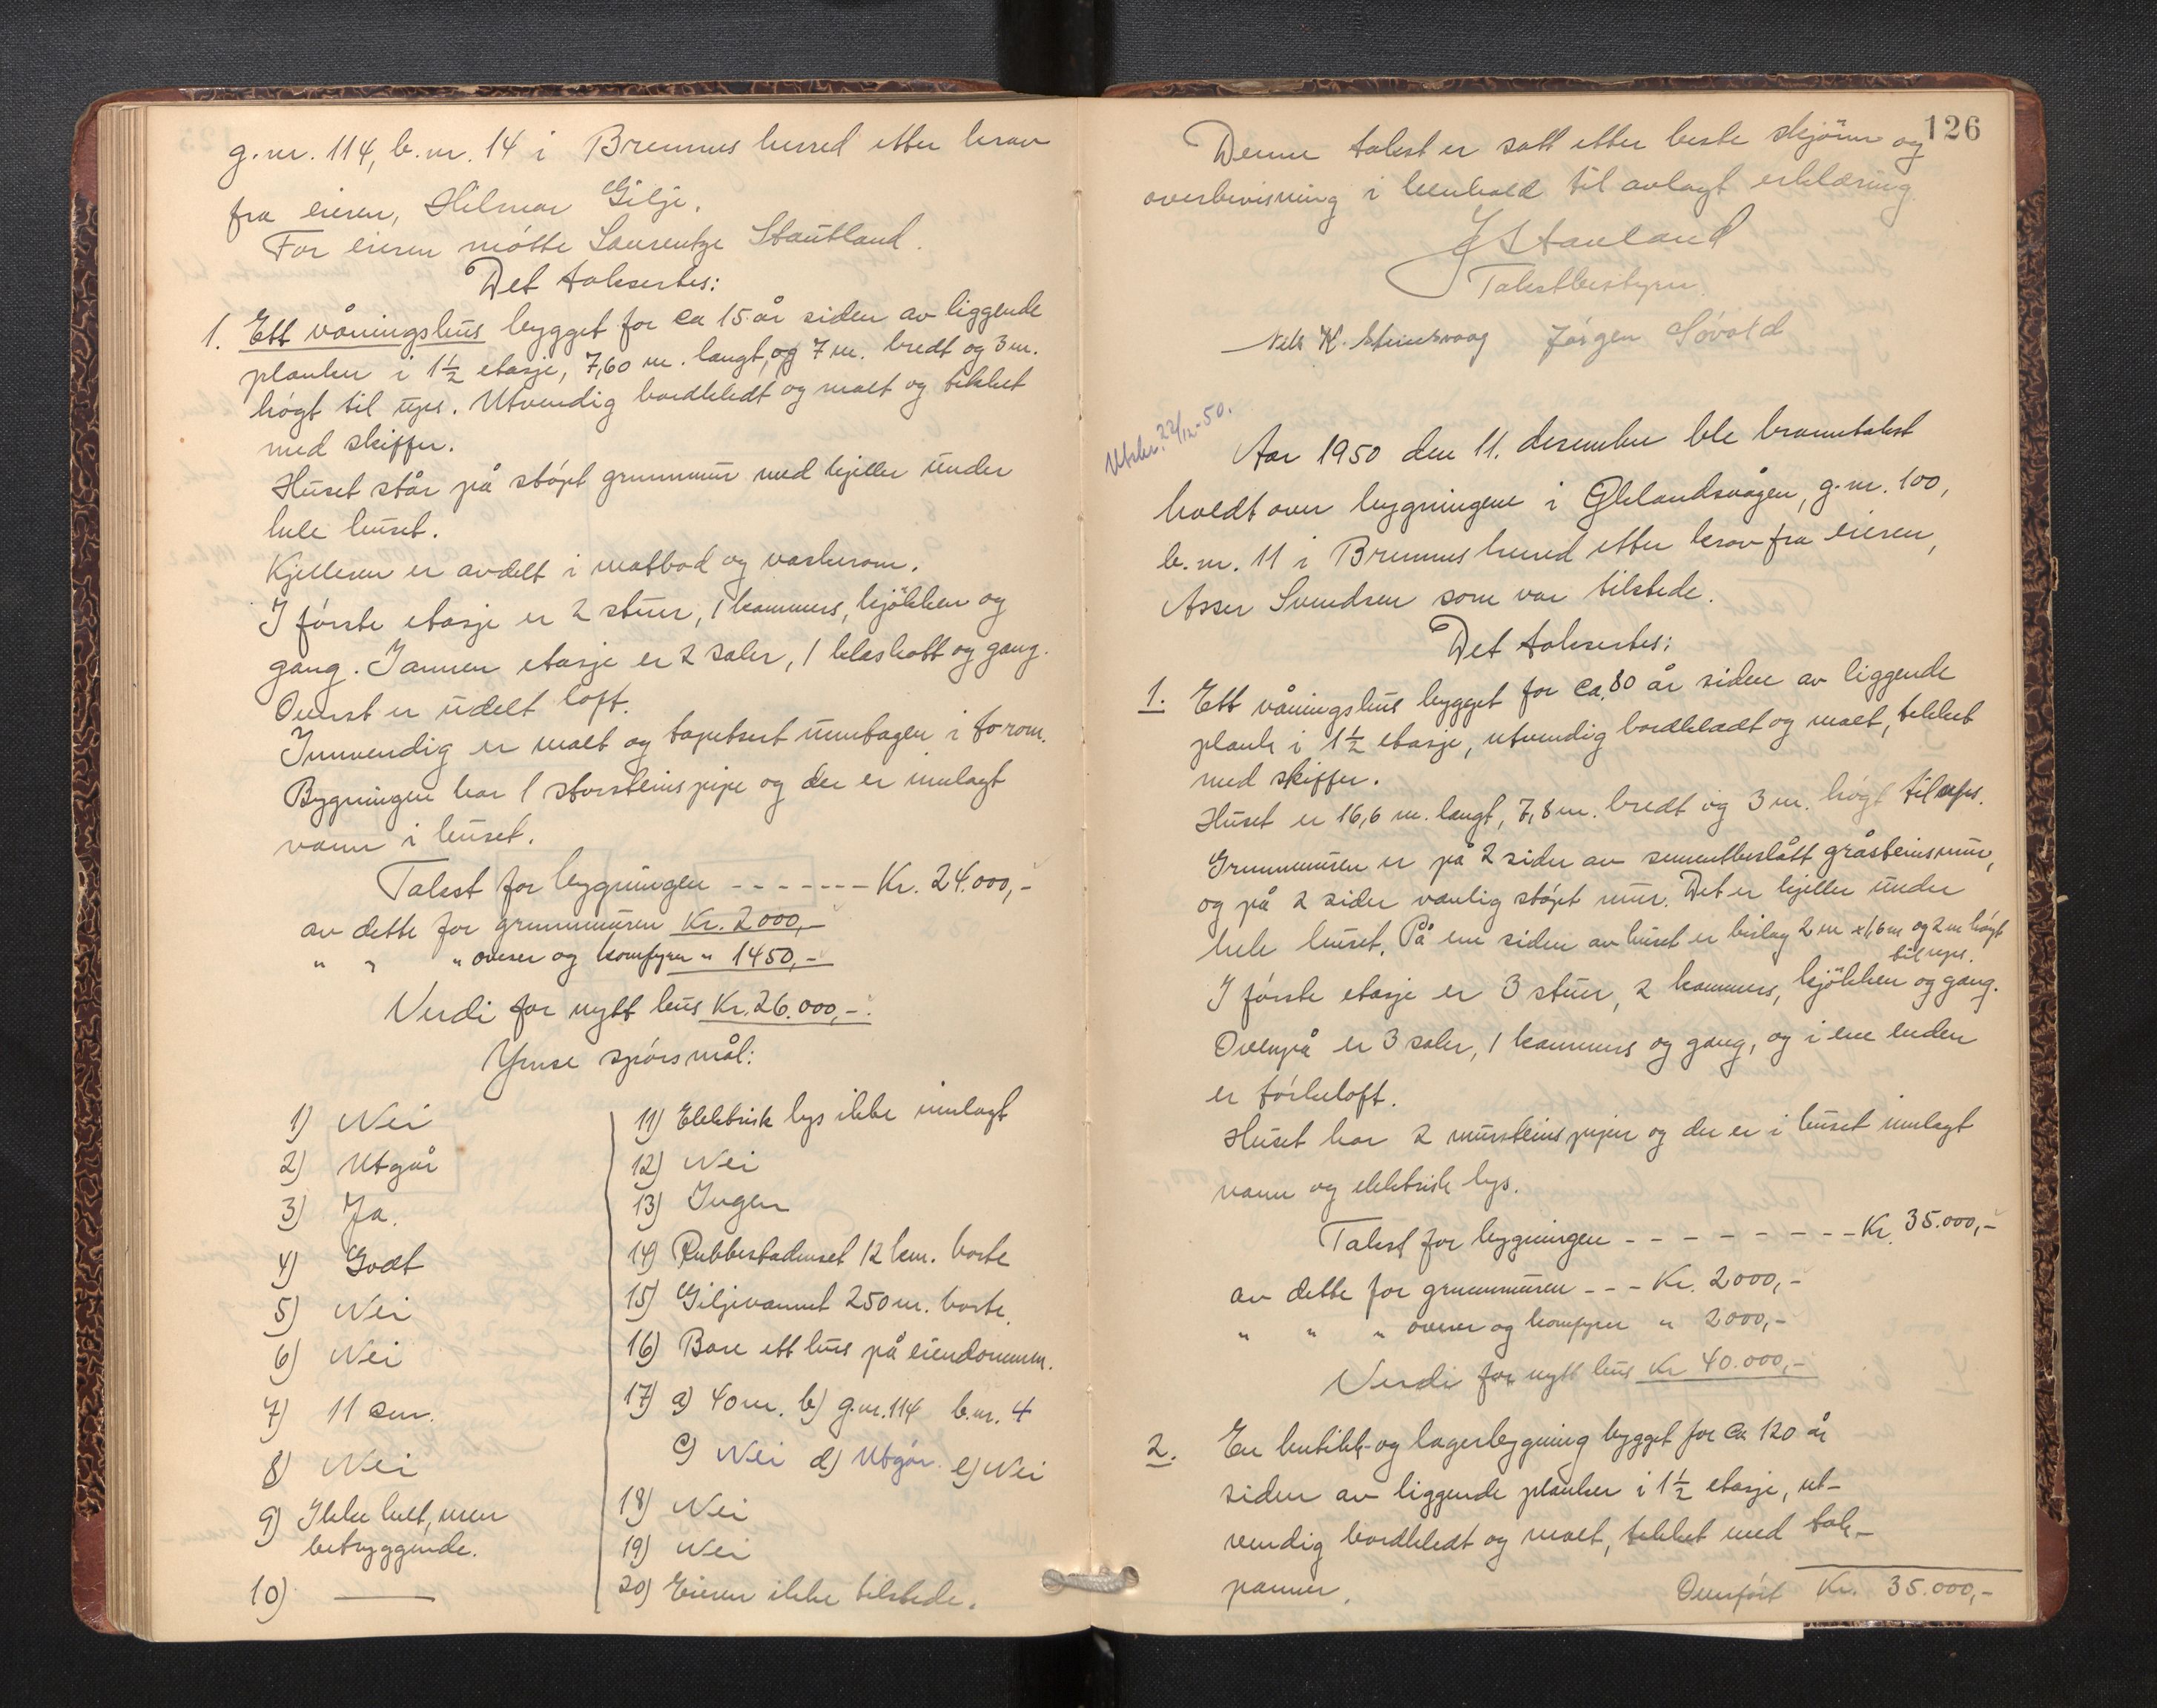 g.nr. 114, b.nr. 14 i Bremnes herred etter krav
fra eieren, Hilmar Gilje.
For eieren møtte Laurentze Stautland.
Det taksertes:
1. Ett våningshus bygget for ca 15 år siden av liggende
planker i 1½ etasje, 7,60 m. langt, og 7 m. bredt og 3 m.
høgt til ups. Utvendig bordkledt og malt og tekket
med skiffer.
Huset står på støpt grunnmur med kjeller under
hele huset.
Kjelleren er avdelt i matbod og vaskerom.
I første etasje er 2 stuer, 1 kammers, kjøkken og
gang. I annen etasje er 2 saler, 1 kleskott og gang.
Øverst er udelt loft.
Innvendig er malt og tapetsert unntagen i to rom.
Bygningen har 1 storsteinspipe og der er innlagt
vann i huset.
Takst for bygningen - - - - - - - Kr. 24.000,-
av dette for grunnmuren Kr. 2000,-
" " " ovner og komfyrer " 1450,-
Verdi for nytt hus Kr. 26.000,-.
Ymse spørsmål:
1) Nei
2) Utgår
3) Ja.
4) Godt
5) Nei
6) Nei
7) 11 cm.
8) Nei
9) Ikke helt, men
betryggende.
10) —
11) Elektrisk lys ikke innlagt
12) Nei
13) Ingen
14) Rubbestadneset 12 km. borte
15) Giljevannet 250 m. borte.
16) Bare ett hus på eiendommen.
17) a) 40 m. b) g.nr. 114 b.nr. 4
c) Nei d) Utgår. e) Nei
18) Nei
19) Nei
20) Eieren ikke tilstede.
126
Denne takst er satt etter beste skjönn og
overbevisning i henhold til avlagt erklæring
J Stauland
Takstbestyrer.
Nils K. Steinsvaag Jørgen Søvold
Utskr. 22/12-50.
Aar 1950 den 11. desember ble branntakst
holdt over bygningene i Øklandsvågen, g.nr. 100,
b.nr. 11 i Bremnes herred etter krav fra eieren,
Asser Svendsen som var tilstede.
Det taksertes:
1. Ett våningshus bygget for ca. 80 år siden av liggende
plank i 1½ etasje, utvendig bordkledt og malt, tekket
med skiffer.
Huset er 16,6 m. langt, 7,8 m. bredt og 3 m. høgt til ups.
Grunnmuren er på 2 sider av sementbeslått gråsteinsmur,
og på 2 sider vanlig støpt mur. Det er kjeller under
hele huset. På ene siden av huset er bislag 2 m x 1,6 m og 2 m høgt
til ups.
I første etasje er 3 stuer, 2 kammers, kjökken og gang.
Ovenpå er 3 saler, 1 kammers og gang, og i ene enden
er tørkeloft.
Huset har 2 mursteinspiper og der er i huset innlagt
vann og elektrisk lys.
Takst for bygningen - - - - - - - - Kr. 35.000,-
av dette for grunnmuren - - - Kr. 2000,-
" " " ovner og komfyrer " 2000,-
Verdi for nytt hus Kr 40.000,-
2. En butikk- og lagerbygning bygget for ca 120 år
siden av liggende planker i 1½ etasje, ut-
vendig bordkledt og malt, tekket med tak-
panner.
Overført Kr. 35.000,-